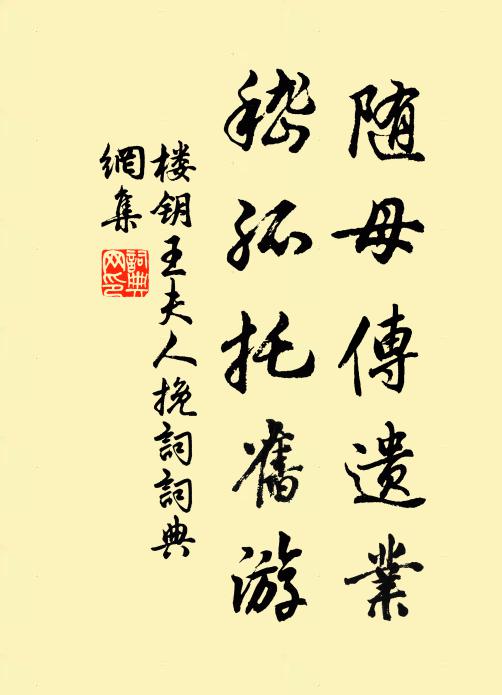 随母傳遺業
嵇孤托舊游
楼钥王夫人挽詞詞典
網集
詞典
网印